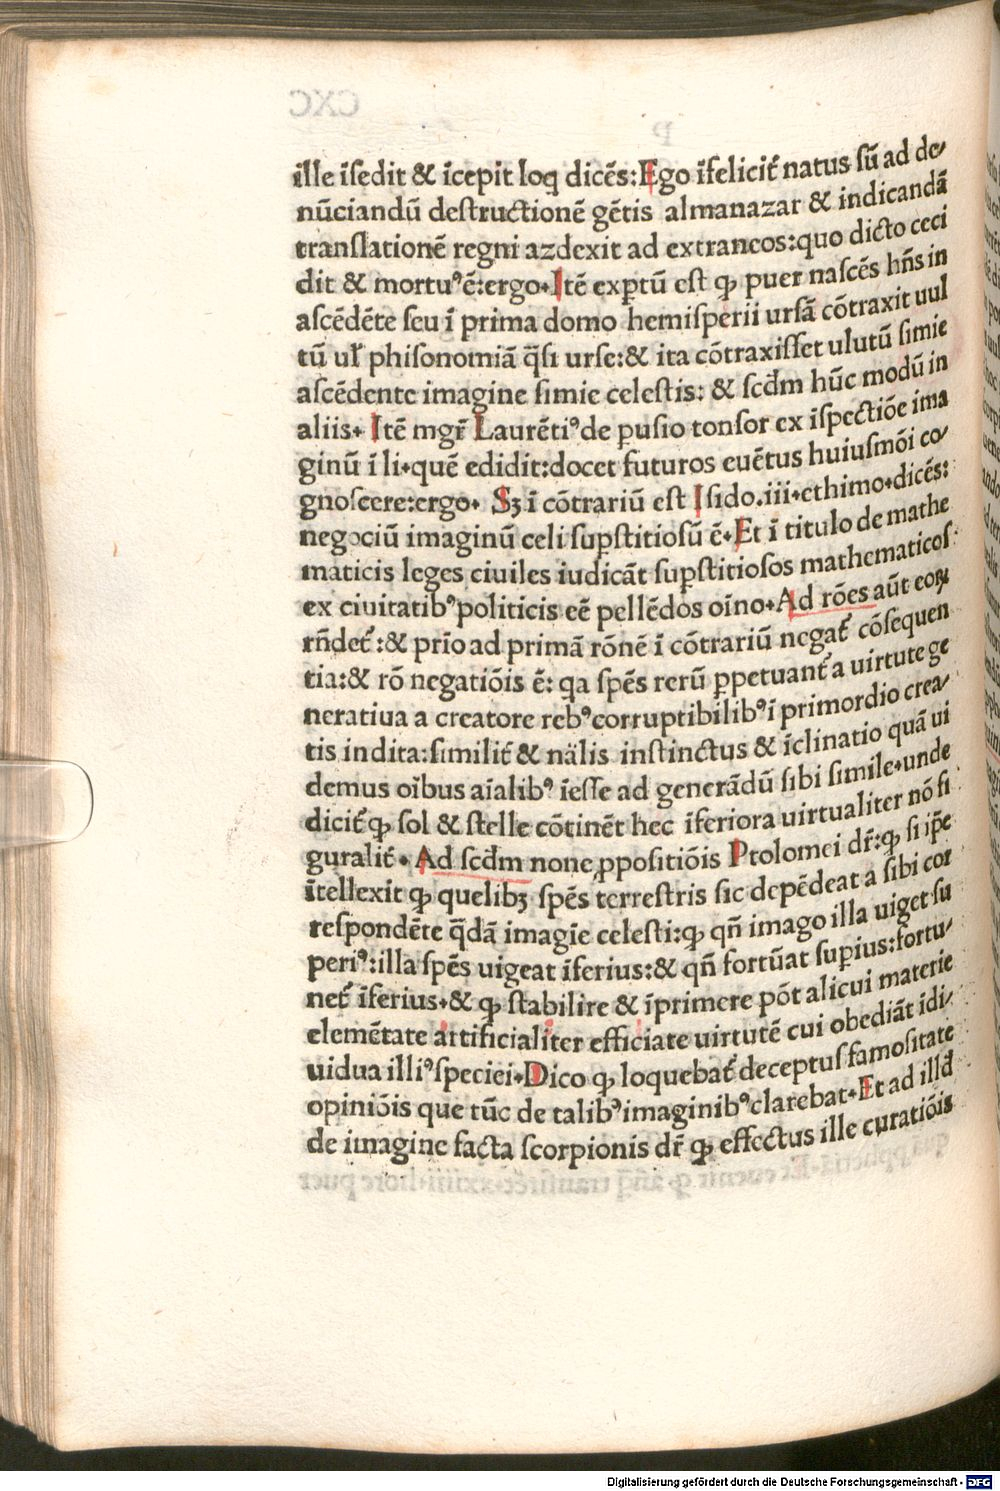 ille ĩsedit & ĩcepit loq̃ dicẽs: Ego ĩfelicit᷑ natus sũ ad de⸗
nũciandũ destructionẽ gẽtis almanazar & indicandã
translationẽ regni azdexit ad extraneos: quo dicto ceci
dit & mortuꝰ ẽ: ergo. Itẽ exptũ est ꝙ puer nascẽs hñs in
ascẽdẽte seu ĩ prima domo hemisperii ursã cõtraxit uul
tũ uꝉ phisonomiã q̃si urse: & ita cõtraxisset ulutũ simie
ascẽdente imagine simie celestis: & scđm hũc modũ in
aliis. Itẽ mgr̃ Laurẽtiꝰ de pusio tonsor ex ĩspectiõe ima
ginũ ĩ li. quẽ edidit: docet futuros euẽtus huiusmõi co⸗
gnoscere: ergo. Sꝫ ĩ cõtrariũ est Isido. iii. ethimo. dicẽs:
negociũ imaginũ celi suꝑstitiosũ ẽ. Et ĩ titulo de mathe
maticis leges ciuiles iudicãt suꝑstitiosos mathematicos
ex ciuitatibꝰ politicis eẽ pellẽdos oĩno. Ad rões aũt eoꝝ
rñdet᷑: & prĩo ad primã rõnẽ ĩ cõtrariũ negat᷑ cõsequen
tia: & rõ negatiõis ẽ: qa spẽs rerũ ꝑpetuant᷑ a uirtute ge
neratiua a creatore rebꝰ corruptibilibꝰ ĩ primordio crea⸗
tis indita: similit᷑ & nãlis instinctus & ĩclinatio quã ui
demus oĩbus aĩalibꝰ ĩesse ad generãdũ sibi simile. unde
dicit᷑ ꝙ sol & stelle cõtinẽt hec ĩferiora uirtualiter nõ fi
guralit᷑. Ad scđm none ꝓpositiõis Ptolomei dr̃: ꝙ si ip̃e
ĩtellexit ꝙ quelibꝫ spẽs terrestris sic depẽdeat a sibi cor
respondẽte q̃dã imagĩe celesti: ꝙ qñ imago illa uiget su
periꝰ: illa spẽs uigeat ĩferius: & qñ fortũat supius: fortu⸗
net᷑ ĩferius. & ꝙ stabilire & ĩprimere põt alicui materie
elemẽtate artificialiter efficiate uirtutẽ cui obediãt ĩdi⸗
uidua illiꝰ speciei. Dico ꝙ loquebat᷑ deceptus famositate
opiniõis que tũc de talibꝰ imaginibꝰ clarebat. Et ad illđ
de imagine facta scorpionis dr̃ ꝙ effectus ille curatiõis
Digitalisierung gefördert durch die Deutsche Forschungsgemeinschaft - DFG